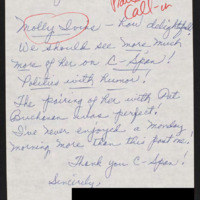 Call-in
Molly Ivins - how delightful!
We should see more much
more of her on C-Span!
Politics with humor!
The pairing of her with Pat
Buchanan was perfect!
I've never enjoyed a Monday
morning more than this past one.
Thank you C-Span!
Sincerely,